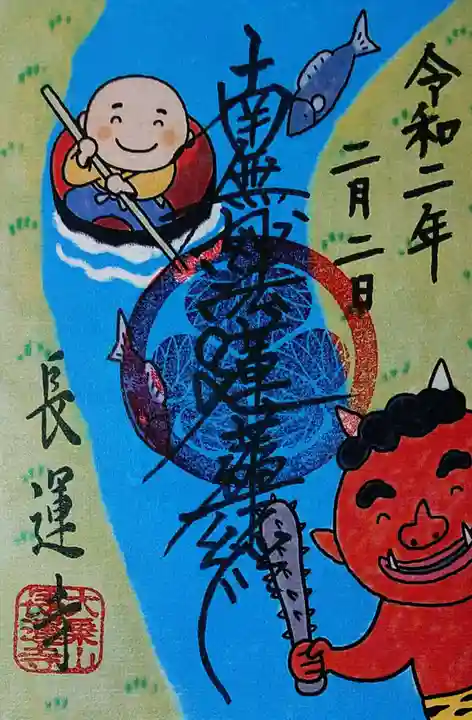 令和二年
二月二日
南無妙法蓮華経
長運寺